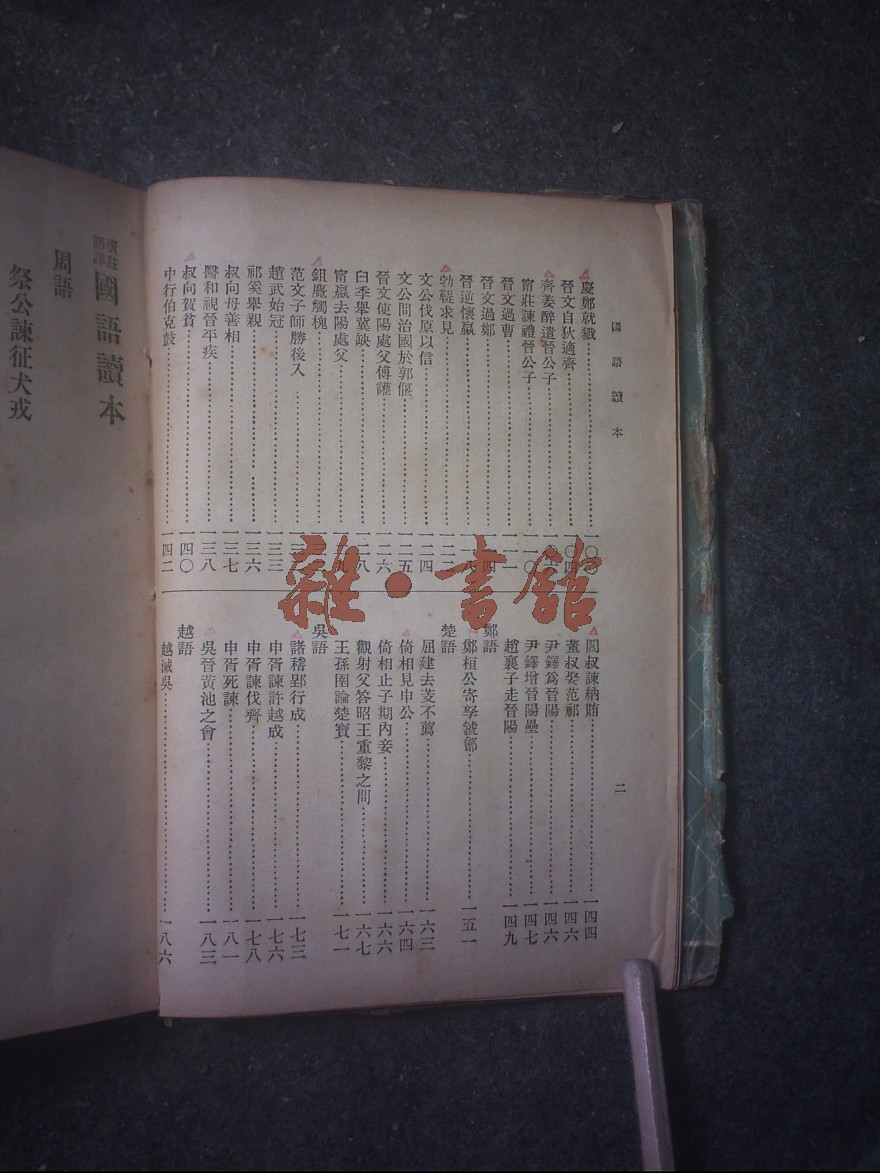 國語讀本
慶鄭就戮
晉文自狄適齊……一〇四
齊姜醉遣晉公子
甯莊諫禮晉公子……一一〇
晉文過曹……一一一
晉文過鄭……四
晉逆懷嬴……八
勃鞮求見……一二二
文公伐原以信……一二四
文公問治國於郭偃……一二五
晉文使陽處父傅讙……一二六
臼季舉冀缺……一二八
甯嬴去陽處父……九
鉏麑觸槐
范文子師勝後入
趙武始冠……一三三
祁奚舉親……一三六
叔向母善相……一三七
醫和視晉平疾……一三八
叔向賀貧……一四〇
中行伯克鼓……一四二
閻叔諫納賄……一四四
董叔娶范祁……一四六
尹鐸爲晉陽……一四六
尹鐸增晉陽壘……一四七
趙襄子走晉陽……一四九
鄭語
鄭桓公寄孥虢鄶……一五一
楚語
屈建去芰不薦……一六三
倚相見申公……一六四
倚相止子期內妾……一六六
觀射父答昭王重黎之問……一六七
王孫圉論楚寶……一七一
吳語
諸稽郢行成……一七三
申胥諫許越成……一七六
申胥諫伐齊……一七八
申胥死諫……一八一
吳晉黃池之會……一八三
越語
越滅吳……一八六
二
廣註
語譯
國語讀本
周語
祭公諫征犬戎
雜·書館